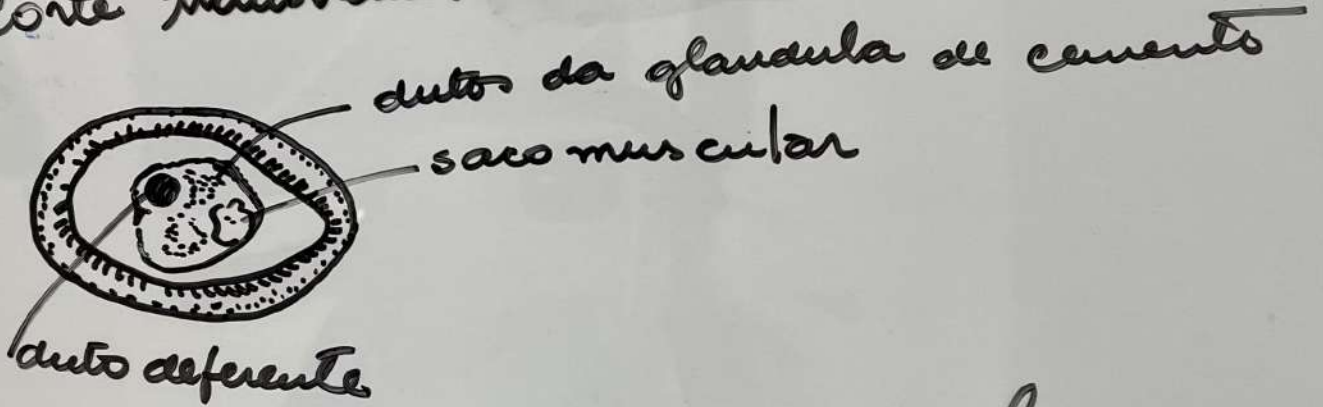 dutos da glandula de cemento
saco muscular
duto deferente